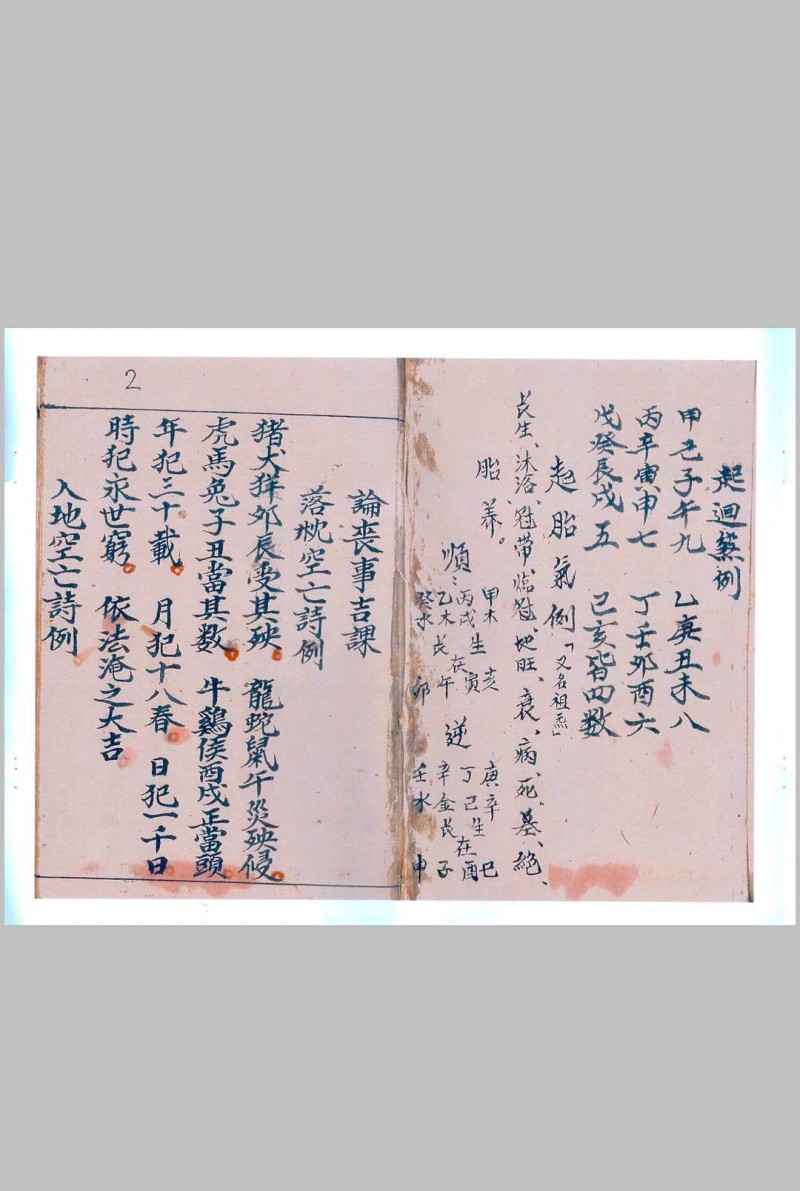 起迴煞例
甲己子午九　乙庚丑未八
丙辛寅申七　丁壬卯酉六
戊癸辰戌五　己亥皆四数
起胎氣例「又名祖炁」
長生、沐浴、冠带、臨冠、地旺、衰、病、死、墓、絕、
胎、養。
順：甲木　亥
丙戊生在寅
乙木長午
癸水　卯
逆　庚辛　巳
丁己生在酉
辛金長子
壬水　申
2
論喪事吉課
落枕空亡詩例
猪犬羊卯辰受其殃。龍蛇鼠午災殃侵。
虎馬兔子丑當其数。牛鷄侯酉戌正當頭。
年犯三十載。月犯十八春。日犯一千日
時犯永世窮。依法淹之大吉。
入地空亡詩例